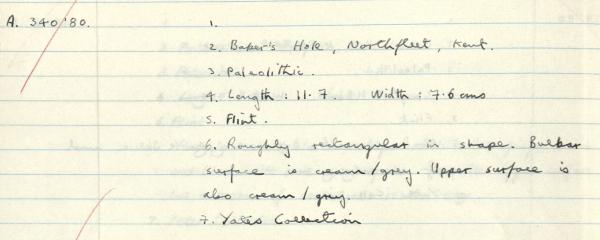 A. 340 '80. 1.
2. Baker's Hole, Northfleet, Kent.
3. Paleolithic.
4. Length : 11.7. Width : 7.6 cms
5. Flint.
6. Roughly rectangular in shape. Bulbar
surface is cream/grey. Upper surface is
also cream/grey.
7. Yates Collection